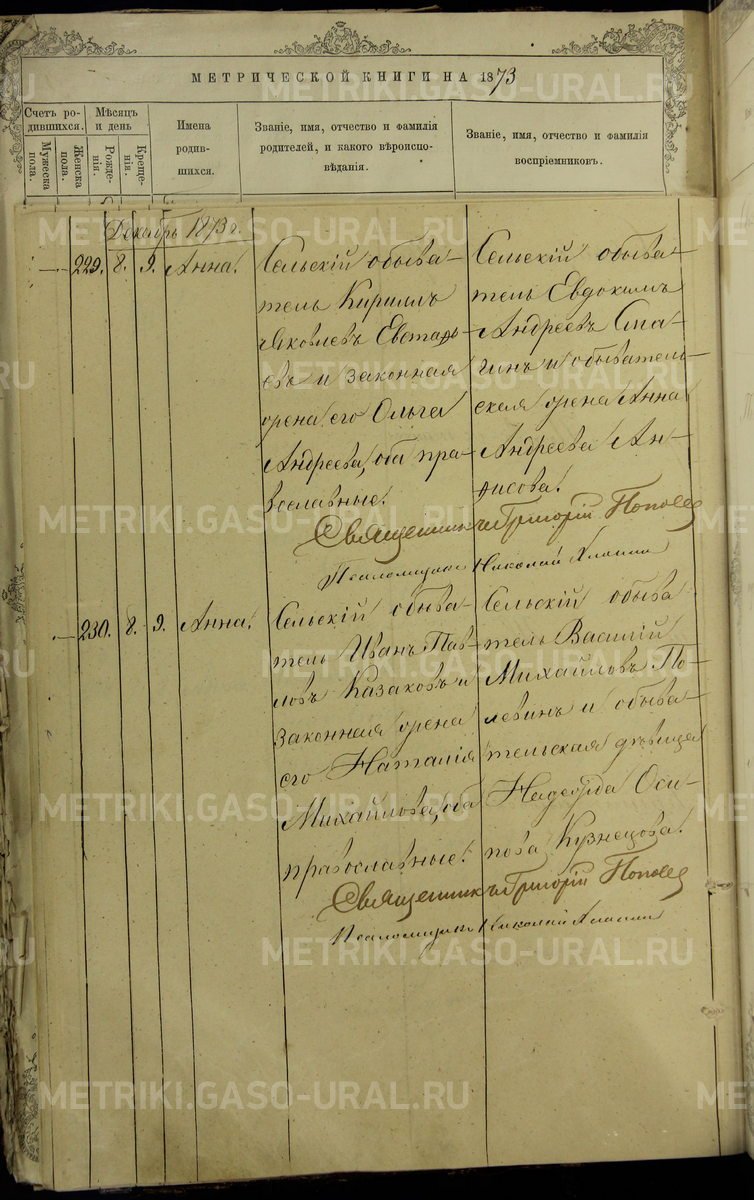 МЕТРИЧЕСКОЙ КНИГИ НА 1873
Счетъ родившихся.
Мужеска пола.
Женска пола.
Мѣсяцъ и день
Рожденія.
Крещенія.
Имена родившихся.
Званіе, имя, отчество и фамилія
родителей, и какого вѣроиспо-
вѣданія.
Званіе, имя, отчество и фамилія
воспріемниковъ.
Декабрь 1873 г.
229. 8. 9. Анна.
Сельскій обыва-
тель Кириллъ
Яковлевъ
евъ и законная
жена его Ольга
Андреева, оба пра-
вославные.
Сельскій обыва-
тель Евдокимъ
Андреевъ
гинъ и обыватель-
ская жена Анна
Андреева
Священникъ Григорій Поповъ
Псаломщикъ Николай
230. 8. 9. Анна.
Сельскій обыва-
тель Иванъ Пав-
ловъ Казаковъ и
законная жена
его Наталія
Михайлова, оба
православные.
Сельскій обыва
тель Василій
Михайловъ По-
левинъ и обыва-
тельская дѣвица
Надежда Оси-
пова Кузнецова.
Священникъ Григорій Поповъ
Псаломщикъ Николай
METRIKI.GASO-URAL.RU